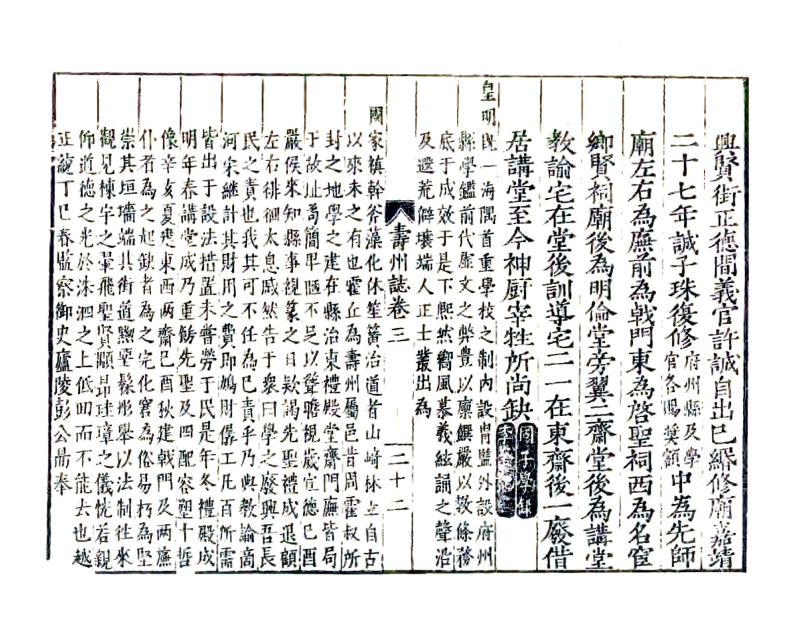 興賢街正德間義官許誠自出已緡修廟嘉靖
二十七年誠子珠復修府州縣及學官各賜奬額中為先師
廟左右為廡前為戟門東為啓聖祠西為名宦
鄉賢祠廟後為明倫堂旁翼二齋堂後為講堂
教諭宅在堂後訓導宅二一在東齋後一廢借
居講堂至今神厨宰牲所尚缺
皇明旣一海隅首重學校之制內設胄監外設府州
縣學鑑前代虛文之弊豊以廩饌嚴以教條務
底于成效于是下熙然嚮風慕義絃誦之聲沿
及遐荒僻壤端人正士叢出為
壽州誌卷三
二十二
國家禎幹谷藻化休笙簧治道者山崎林立自古
以來未之有也霍丘為壽州屬邑昔周霍叔所
封之地學之建在縣治東禮殿堂齋門廡皆局
于故址卑簡不足以聳瞻視歲宣德己酉
嚴侯來知縣事視篆之日欵謁先聖禮成退顧
左右徘徊太息戚然告于衆曰學之廢興吾長
民之責也我其可不任為己責乎乃與教諭高
河宋繼計其財用之費即鳩財僝工凡百所需
皆出于設法措置未嘗勞于民是年冬禮殿成
明年春講堂成乃重餙先聖及四配容塑十哲
像辛亥夏東西兩齋己酉秋建戟門及兩廡
仆者為之起缺者為之完化窳為俗易朽為堅
崇其垣墻端其街道黝堊髹彤舉以法制往來
觀見棟宇之翬飛聖賢顒昂珪璋之儀恍若親
仰道德之光於洙泗之上低囬而不能去也越
正統丁巳春監察御史廬陵彭公勗奉